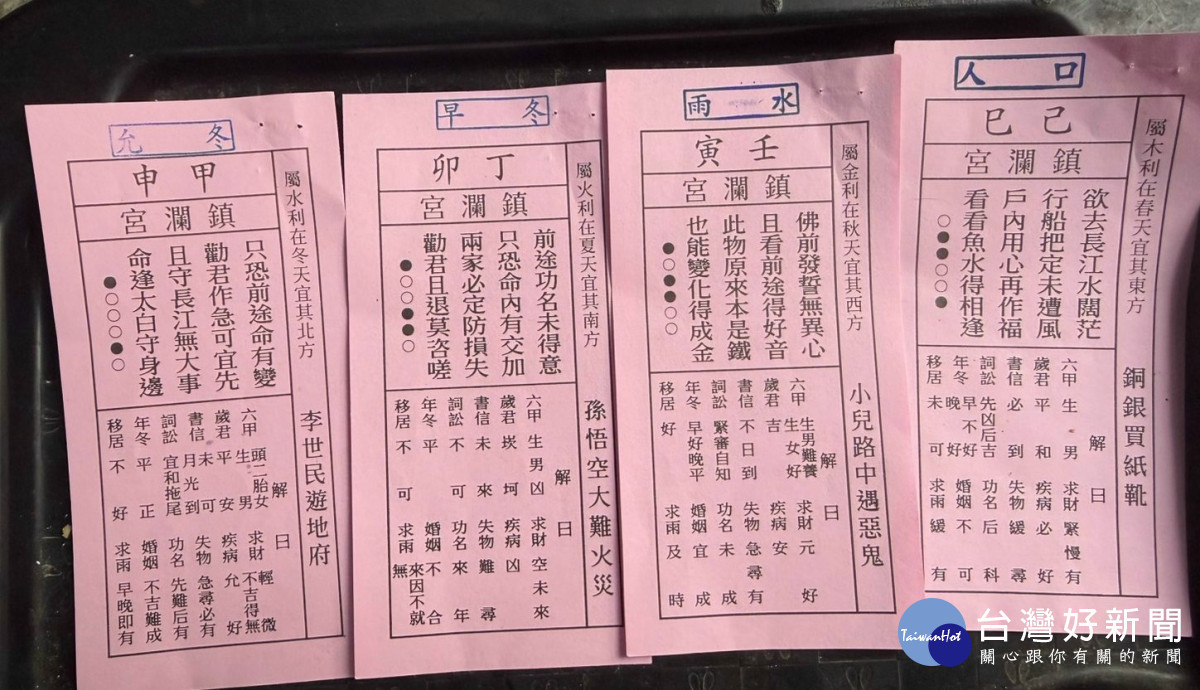 口人
己巳
鎮瀾宮
屬木利在春天宜其東方
銅銀買紙靴
欲去長江水闊茫
行船把定未遭風
戶內用心再作福
看看魚水得相逢
○●●○○●
解曰
六甲生男 求財緊慢有
歲君平和 疾病必好
書信必到 失物緩尋
詞訟先凶后吉 功名后科
年冬早不好晚好 婚姻不可
移居未可 求雨緩有
水雨
壬寅
鎮瀾宮
屬金利在秋天宜其西方
小兒路中遇惡鬼
佛前發誓無異心
且看前途得好音
此物原來本是鐵
也能變化得成金
●○●●○○
解曰
六甲生男難養生女好 求財元好
歲君吉 疾病安
書信不日到 失物急尋有
詞訟緊審自知 功名未成
年冬早好晚平 婚姻宜成
移居好 求雨及時
冬早
丁卯
鎮瀾宮
屬火利在夏天宜其南方
孫悟空大難火災
前途功名未得意
只恐命內有交加
兩家必定防損失
勸君且退莫咨嗟
●○○●●○
解曰
六甲生男凶 求財空未來
歲君崁坷 疾病凶
書信未來 失物難尋
詞訟不可 功名來年
年冬平 婚姻不合
移居不可 求雨來因不就無
冬允
甲申
鎮瀾宮
屬水利在冬天宜其北方
李世民遊地府
只恐前途命有變
勸君作急可宜先
且守長江無大事
命逢太白守身邊
●○○○●○
解曰
六甲頭二胎女生男 求財輕微不吉得無
歲君平安 疾病允好
書信未可月光到 失物急尋必有
詞訟宜和拖尾 功名先難后有
年冬平正 婚姻不吉難成
移居不好 求雨早晚即有
TaiwanHot
台灣好新聞
關心跟你有關的新聞